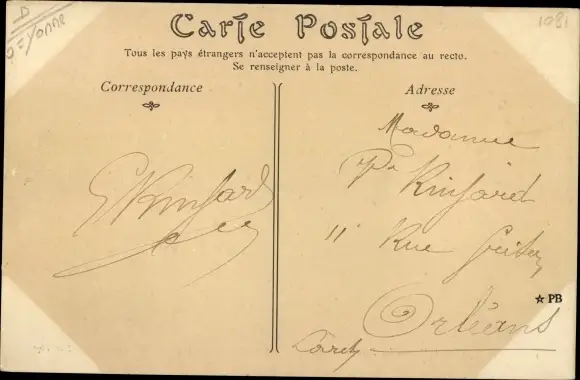 D
Yonne
1081
Carte Postale
Tous les pays étrangers n'acceptent pas la correspondance au recto.
Se renseigner à la poste.
Correspondance
Adresse
Madame
11 Rue
★ PB
Orléans
Loiret